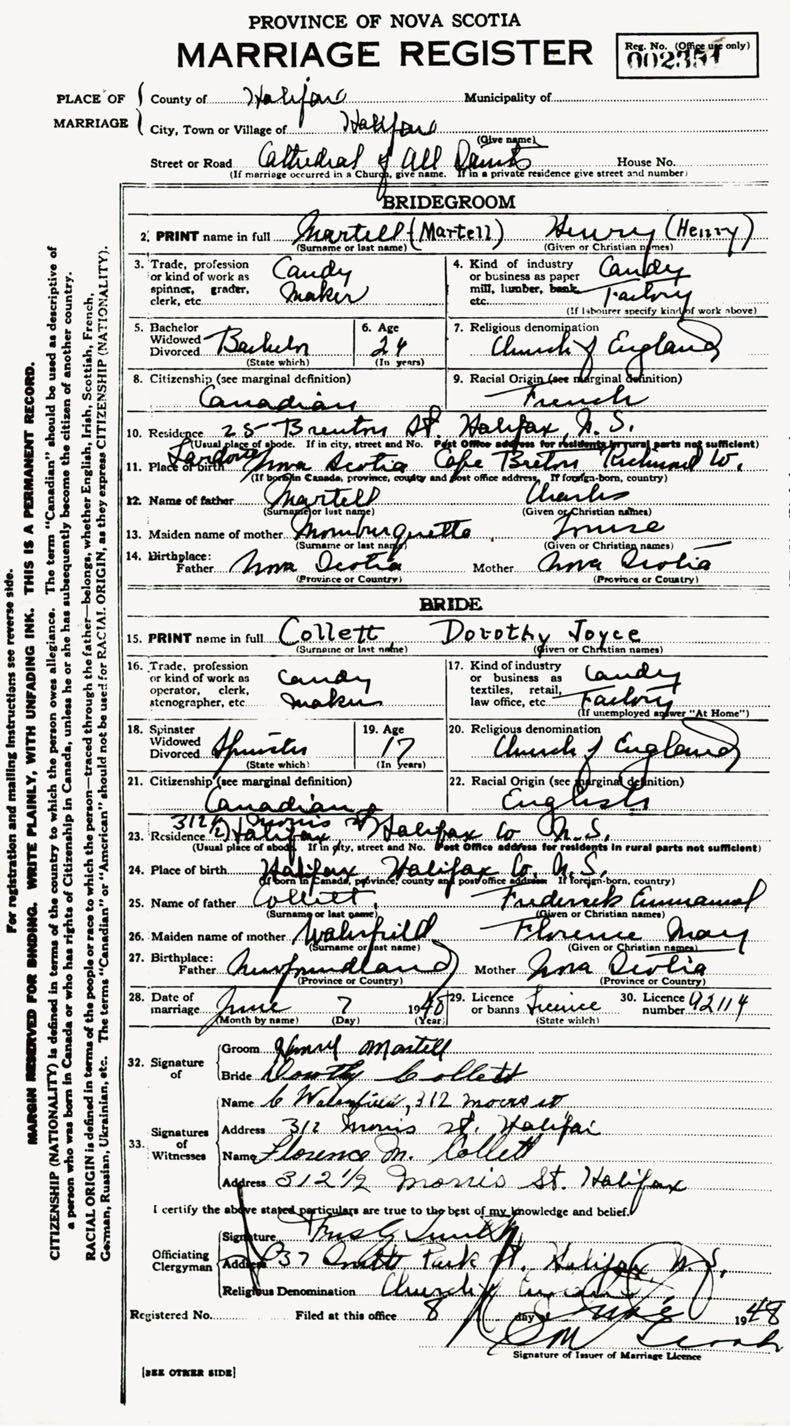 PROVINCE OF NOVA SCOTIA
MARRIAGE REGISTER
Reg. No. (Office use only)
002351
PLACE OF MARRIAGE
County of Halifax Municipality of
City, Town or Village of Halifax
(Give name)
Street or Road Cathedral of All Saints House No.
(If marriage occurred in a Church, give name. If in a private residence give street and number)
BRIDEGROOM
2. PRINT name in full Martell (Martell) Henry (Henry)
(Surname or last name) (Given or Christian names)
3. Trade, profession or kind of work as spinner, grader, clerk, etc. Candy Maker
4. Kind of industry or business as paper mill, lumber, bank, etc. Candy Factory
(If labourer specify kind of work above)
5. Bachelor Widowed Divorced Bachelor (State which)
6. Age 24 (In years)
7. Religious denomination Church of England
8. Citizenship (see marginal definition) Canadian
9. Racial Origin (see marginal definition) French
10. Residence 25 Brenton St Halifax, N.S.
(Usual place of abode. If in city, street and No. Post Office address for residents in rural parts not sufficient)
11. Place of birth Nova Scotia Cape Breton Richmond Co.
(If born in Canada, province, county and post office address, If foreign-born, country)
12. Name of father Martell Charles
(Surname or last name) (Given or Christian names)
13. Maiden name of mother Mombourquette Louise
(Surname or last name) (Given or Christian names)
14. Birthplace: Father Nova Scotia Mother Nova Scotia
(Province or Country) (Province or Country)
BRIDE
15. PRINT name in full Collett Dorothy Joyce
(Surname or last name) (Given or Christian names)
16. Trade, profession or kind of work as operator, clerk, stenographer, etc. Candy Maker
17. Kind of industry or business as textiles, retail, law office, etc. Candy Factory
(If unemployed answer "At Home")
18. Spinster Widowed Divorced Spinster (State which)
19. Age 17 (In years)
20. Religious denomination Church of England
21. Citizenship (see marginal definition) Canadian
22. Racial Origin (see marginal definition) English
23. Residence 312½ Morris St Halifax Halifax Co N.S.
(Usual place of abode. If in city, street and No. Post Office address for residents in rural parts not sufficient)
24. Place of birth Halifax Halifax Co. N.S.
(If born in Canada, province, county and post office address If foreign-born, country)
25. Name of father Collett Frederick Emmanuel
(Surname or last name) (Given or Christian names)
26. Maiden name of mother Wakefield Florence May
(Surname or last name) (Given or Christian names)
27. Birthplace: Father Newfoundland Mother Nova Scotia
(Province or Country) (Province or Country)
28. Date of marriage June 7 1948
(Month by name) (Day) (Year)
29. Licence or banns Licence (State which)
30. Licence number 92114
32. Signature of
Groom Henry Martell
Bride Dorothy Collett
33. Signatures of Witnesses
Name C Wakefield, 312 Morris st
Address 312 Morris st. Halifax
Name Florence M. Collett
Address 312 1/2 Morris St. Halifax
I certify the above stated particulars are true to the best of my knowledge and belief.
Officiating Clergyman
Signature
Address 37 Park St. Halifax N.S.
Religious Denomination Church of England
Registered No. Filed at this office 8 day of June 1948
Signature of Issuer of Marriage Licence
[SEE OTHER SIDE]
For registration and mailing instructions see reverse side.
MARGIN RESERVED FOR BINDING. WRITE PLAINLY, WITH UNFADING INK. THIS IS A PERMANENT RECORD.
CITIZENSHIP (NATIONALITY) is defined in terms of the country to which the person owes allegiance. The term "Canadian" should be used as descriptive of
a person who was born in Canada or who has rights of Citizenship in Canada, unless he or she has subsequently become the citizen of another country.
RACIAL ORIGIN is defined in terms of the people or race to which the person—traced through the father—belongs, whether English, Irish, Scottish, French,
German, Russian, Ukrainian, etc. The terms "Canadian" or "American" should not be used for RACIAL ORIGIN, as they express CITIZENSHIP (NATIONALITY).